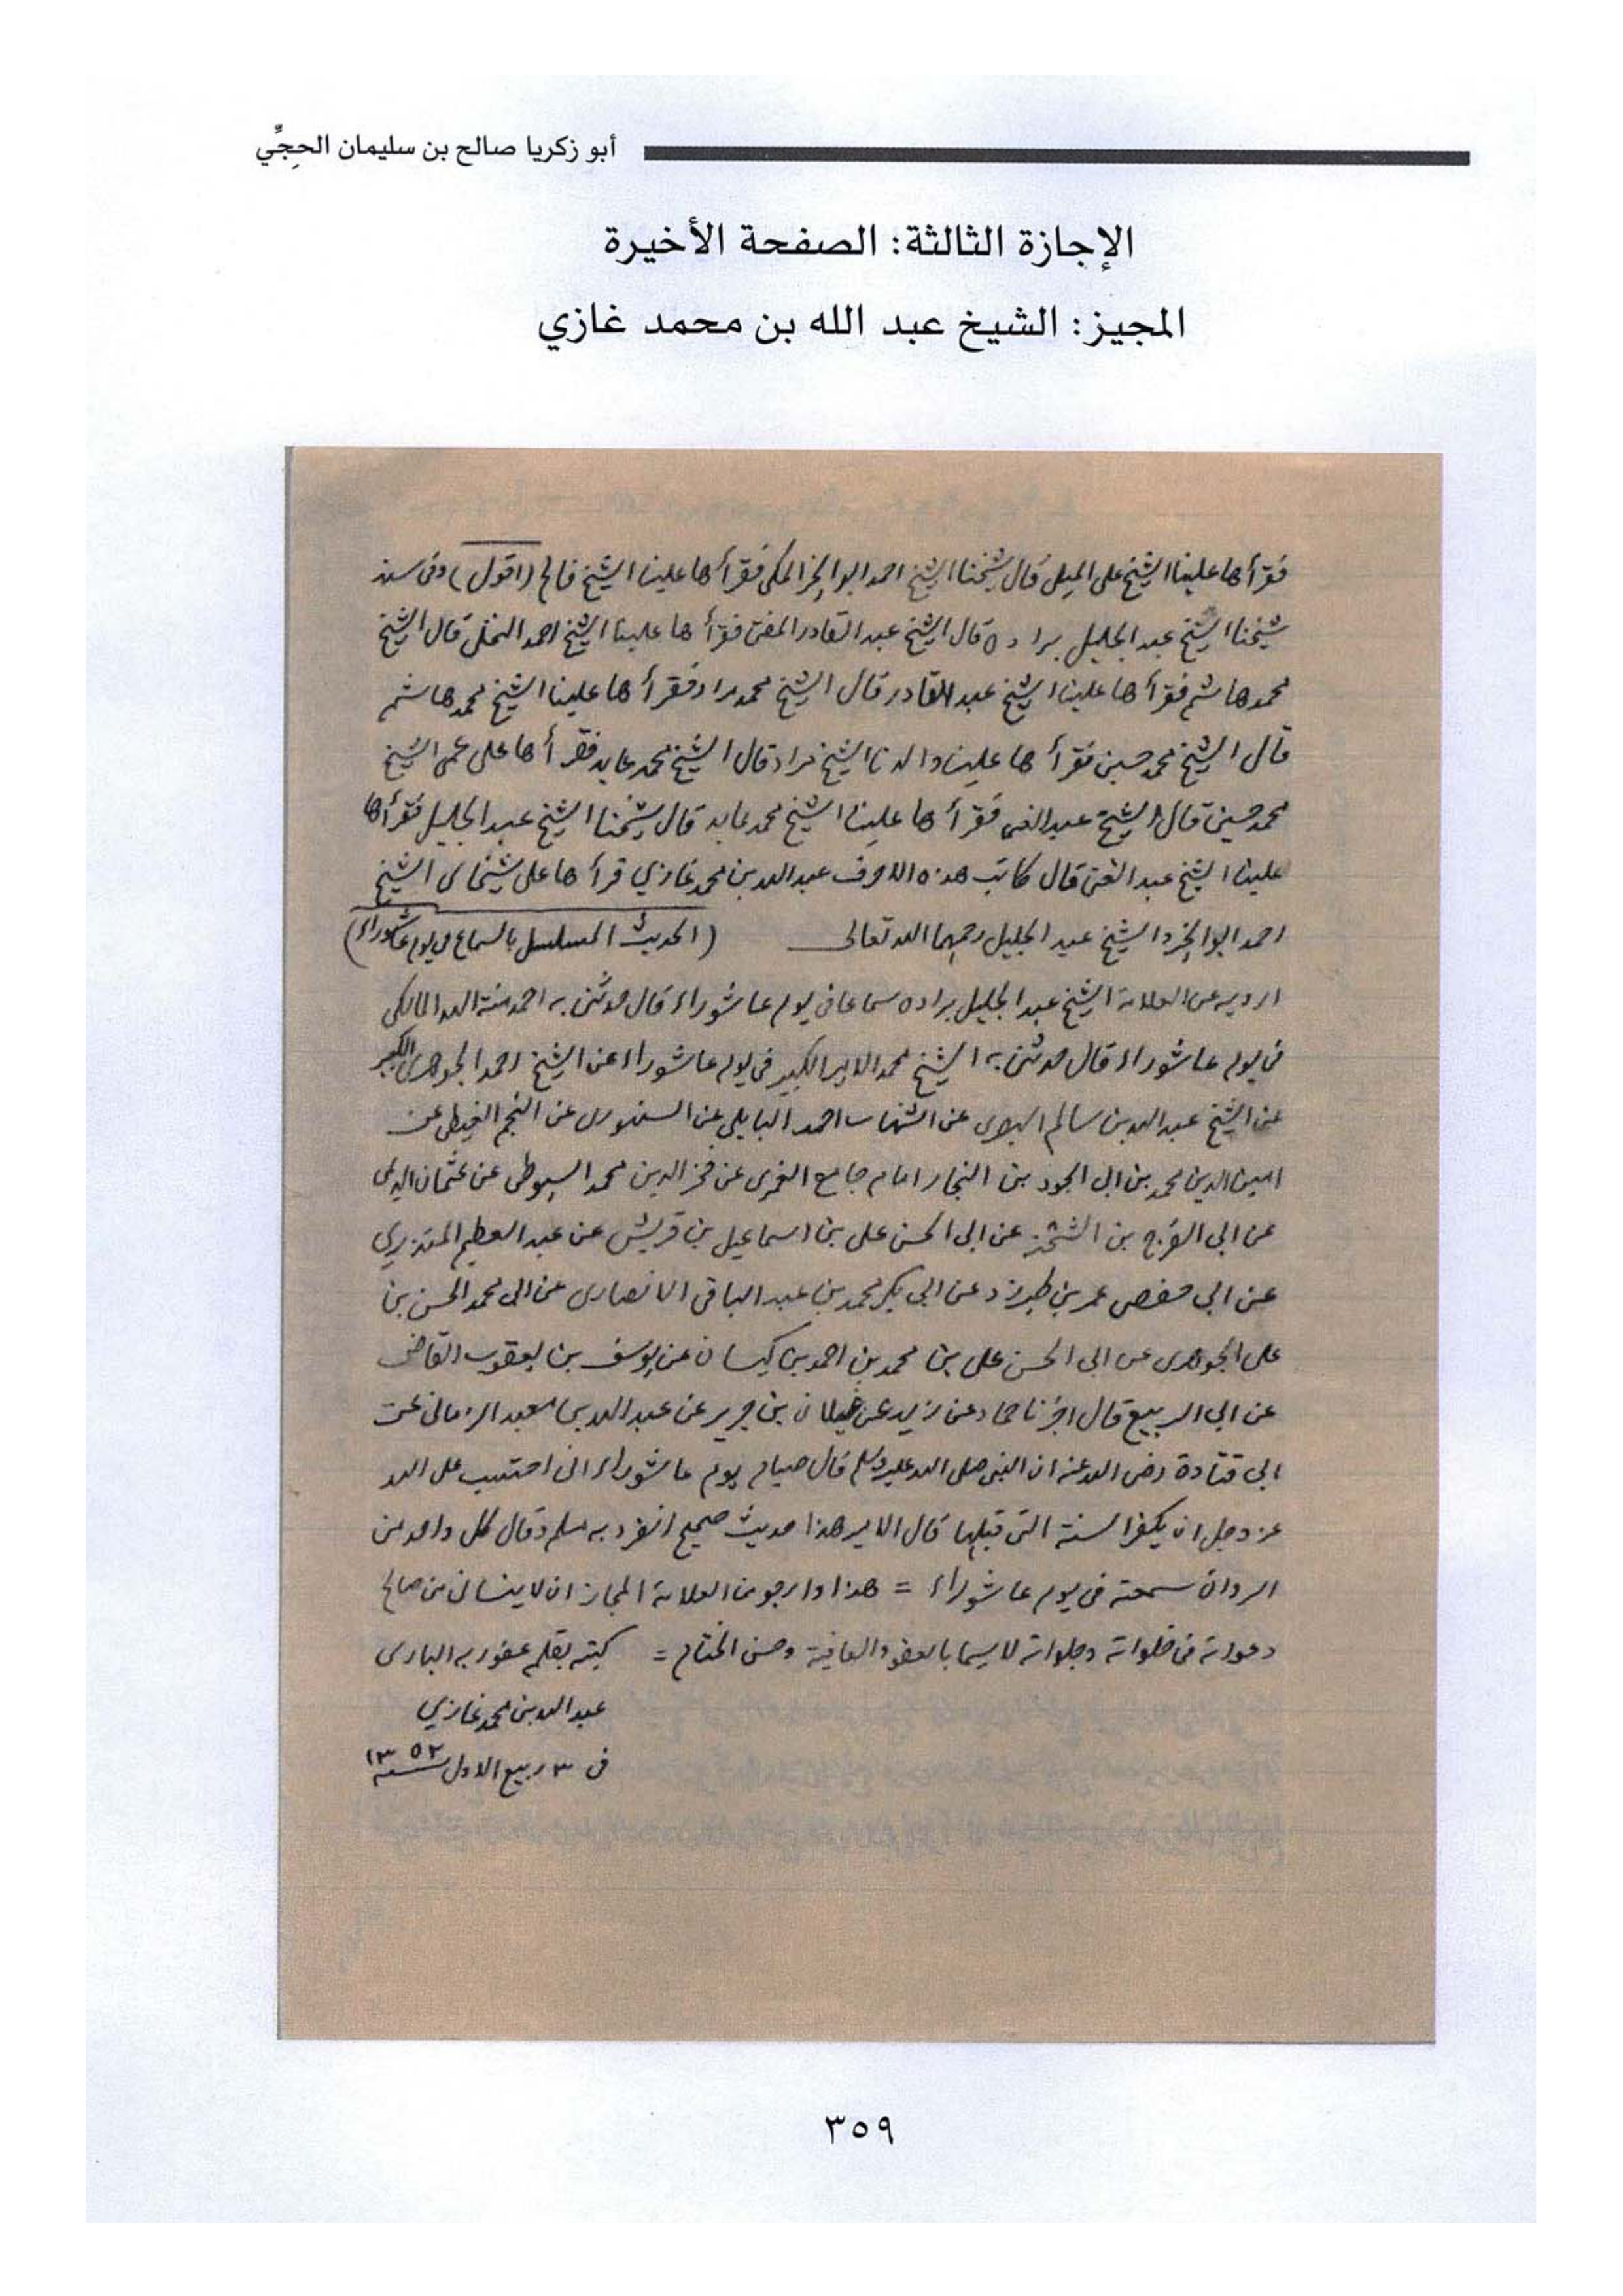 أبو زكريا صالح بن سليمان الحجِّي
الإجازة الثالثة: الصفحة الأخيرة
المجيز: الشيخ عبد الله بن محمد غازي
فقرأها علينا الشيخ على الميلي قال شيخنا الشيخ احمد ابو الخير المكي فقرأها علينا الشيخ فالح (اقول) وفى سند
شيخنا الشيخ عبد الجليل براده قال الشيخ عبد القادر المفتى فقرأها علينا الشيخ احمد النخلى قال الشيخ
محمد هاشم فقرأها علينا الشيخ عبد القادر قال الشيخ محمد مراد فقرأها علينا الشيخ محمد هاشم
قال الشيخ محمد حسين فقرأها علينا والدنا الشيخ مراد قال الشيخ محمد عابد فقرأها على عمى الشيخ
محمد حسين قال الشيخ عبد الغنى فقرأها علينا الشيخ محمد عابد قال شيخنا الشيخ عبد الجليل فقرأها
علينا الشيخ عبد الغنى قال كاتب هذه الاحرف عبد الله بن محمد غازي قرأها على شيخاى الشيخ
احمد ابو الخير والشيخ عبد الجليل رحمهما الله تعالى (الحديث المسلسل بالسماع فى يوم عاشوراء)
ارويه عن العلامة الشيخ عبد الجليل براده سماعا فى يوم عاشوراء قال حدثنى به احمد منة الله المالكى
فى يوم عاشوراء قال حدثنى به الشيخ محمد الامير الكبير فى يوم عاشوراء عن الشيخ احمد الجوهرى الكبير
عن الشيخ عبد الله بن سالم البصرى عن الشهاب احمد البابلى عن السنهورى عن النجم الغيطى عن
امين الدين محمد بن ابى الجود بن النجار امام جامع الغمرى عن فخر الدين محمد السيوطى عن عثمان الديمى
عن ابى الفرج بن الشحنة عن ابى الحسن على بن اسماعيل بن قريش عن عبد العظيم المنذري
عن ابى حفص عمر بن طبرزد عن ابى بكر محمد بن عبد الباقى الانصارى عن ابى محمد الحسن بن
على الجوهرى عن ابى الحسن على بن محمد بن احمد بن كيسان عن يوسف بن يعقوب القاضى
عن ابى الربيع قال اخبرنا حماد عن زيد عن غيلان بن جرير عن عبد الله بن معبد الزمانى عن
ابى قتادة رضى الله عنه ان النبى صلى الله عليه وسلم قال صيام يوم عاشوراء انى احتسب على الله
عز وجل ان يكفر السنة التى قبلها قال الامير هذا حديث صحيح انفرد به مسلم وقال كل واحد من
الرواة سمعته فى يوم عاشوراء = هذا وارجو من العلامة المجاز ان لا ينسانى من صالح
دعواته فى خلواته وجلواته لا سيما بالعفو والعافية وحسن الختام = كتبه بقلمه عفو ربه البارى
عبد الله بن محمد غازي
فى ٣ ربيع الاول سنة ١٣٥٢
٣٥٩